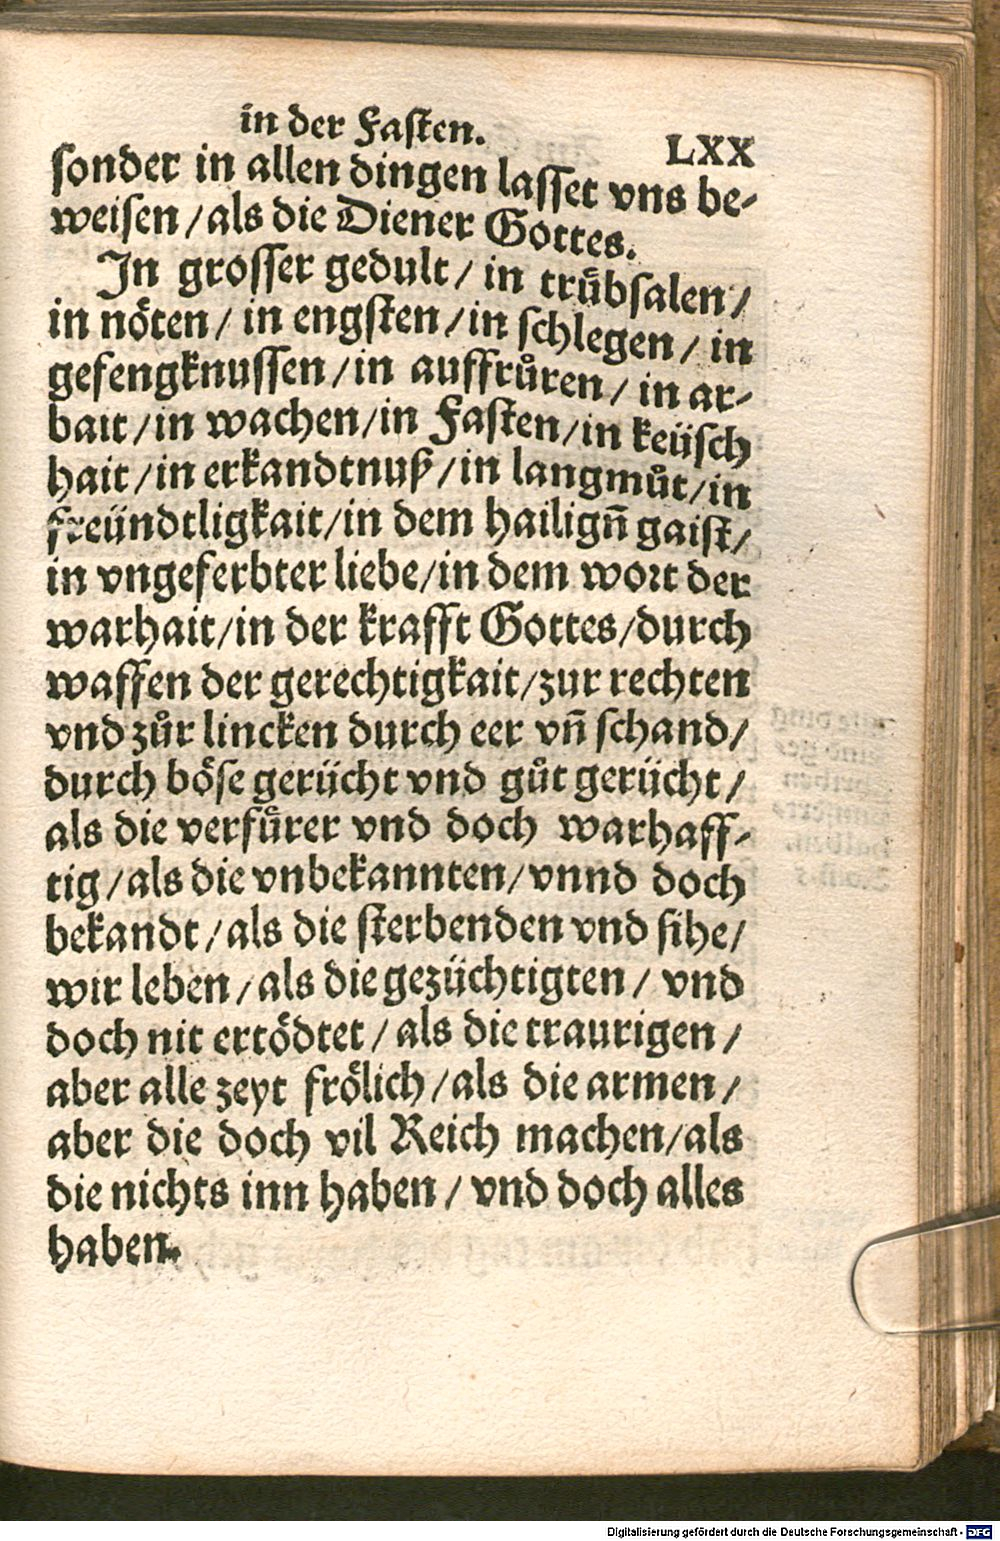 in der Faſten.
LXX
ſonder in allen dingen laſſet vns be⸗
weiſen / als die Diener Gottes.
In groſſer gedult / in truͤbſalen /
in noͤten / in engſten / in ſchlegen / in
gefengknuſſen / in auffruͦren / in ar⸗
bait / in wachen / in Faſten / in keüſch
hait / in erkandtnuß / in langmuͦt / in
freündtligkait / in dem hailign̄ gaiſt /
in vngeferbter liebe / in dem wort der
warhait / in der krafft Gottes / durch
waffen der gerechtigkait / zur rechten
vnd zuͦr lincken durch eer vn̄ ſchand /
durch boͤſe gerücht vnd guͦt gerücht /
als die verfuͤrer vnd doch warhaff⸗
tig / als die vnbekannten / vnnd doch
bekandt / als die ſterbenden vnd ſihe /
wir leben / als die gezüchtigten / vnd
doch nit ertoͤdtet / als die traurigen /
aber alle zeyt froͤlich / als die armen /
aber die doch vil Reich machen / als
die nichts inn haben / vnd doch alles
haben.
Digitalisierung gefördert durch die Deutsche Forschungsgemeinschaft - DFG